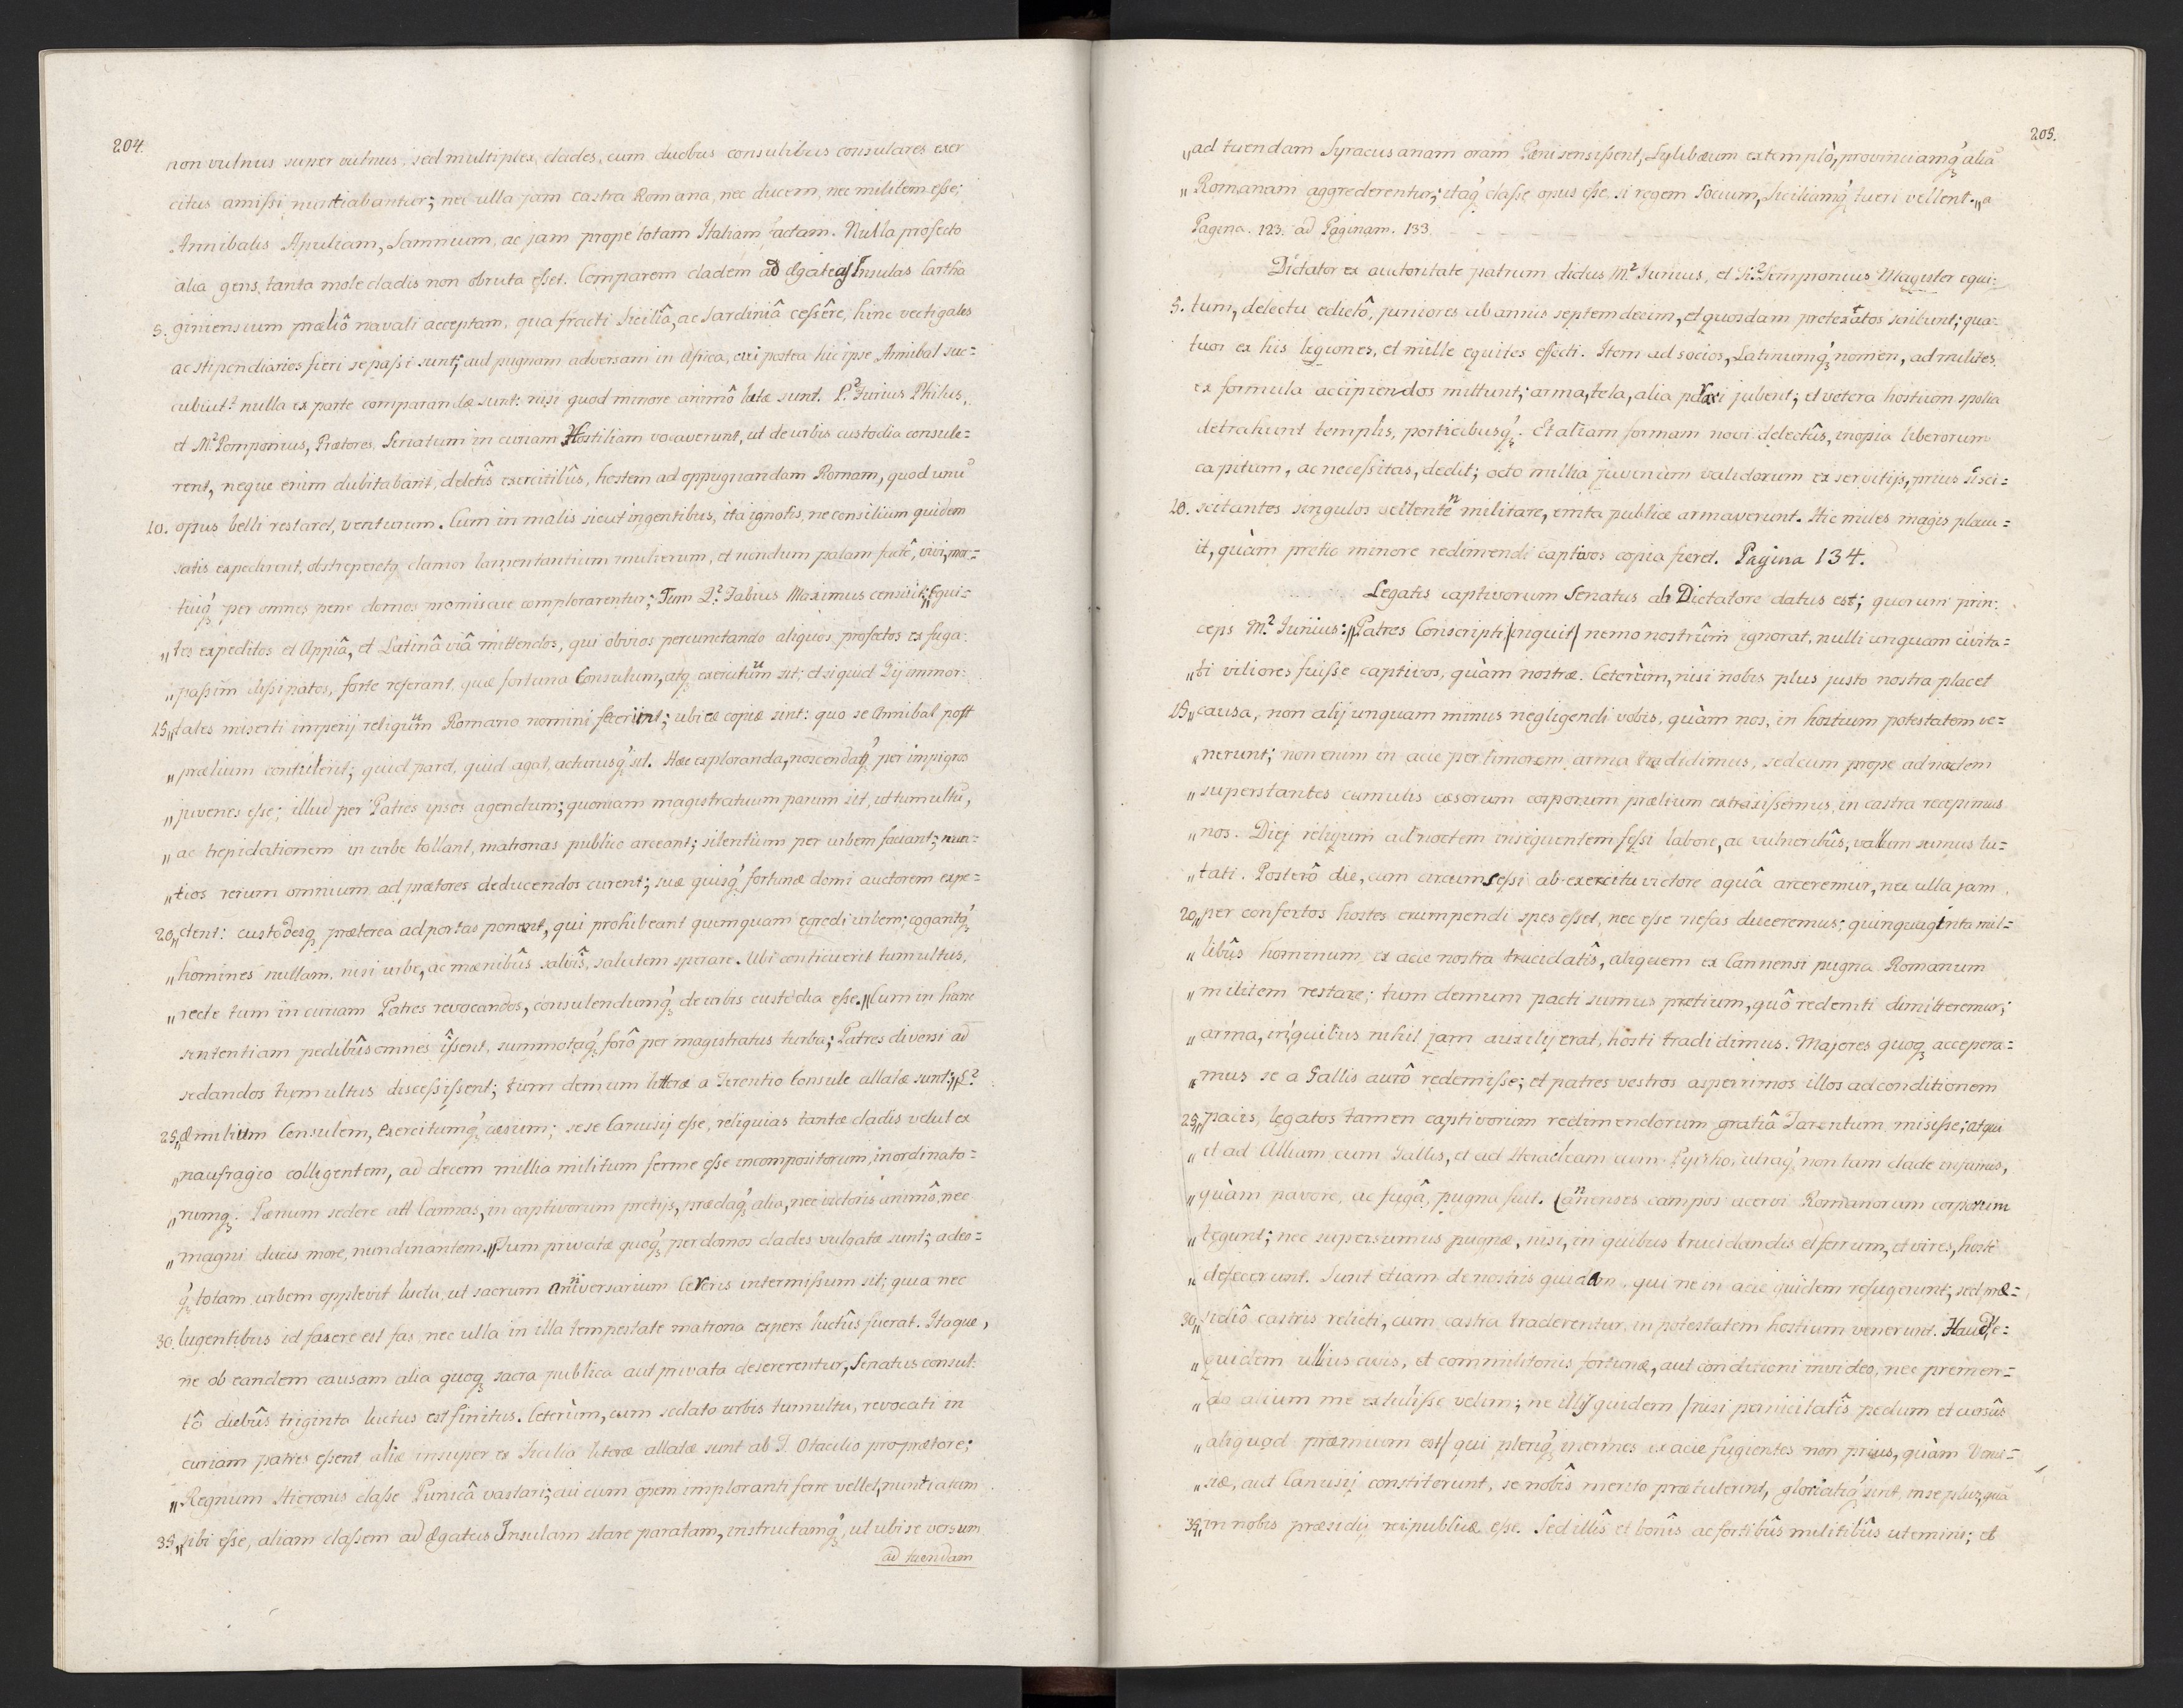 204.
non vulnus super vulnus, sed multiplex clades, cum duobus consulibus consulares exer
citus amissi nuntiabantur; nec ulla jam castra Romana, nec ducem, nec militem esse;
Annibalis Apuliam, Samnium, ac jam prope totam Italiam factam. Nulla profecto
alia gens, tanta mole cladis non obruta esset. Comparem cladem ad Ægates Insulas Cartha
5. giniensium præliô navali acceptam, qua fracti Siciliâ, ac Sardiniâ cessêre, hinc vectigales
ac stipendiarios fieri se passi sunt; aut pugnam adversam in Africa, cui postea hic ipse Annibal suc=
cubuit? nulla ex parte comparandæ sunt: nisi quod minore animô latæ sunt. P? Furius Philus,
et M? Pomponius, Prætores, Senatum in curiam Hostiliam vocaverunt, ut de urbis custodia consule=
rent, neque enim dubitabant, deletîs exercitibûs, hostem ad oppugnandam Romam, quod unũ
10. opus belli restaret, venturum. Cum in malis sicut ingentibus, ita ignotis, ne consilium quidem
satis expedirent, obstreperetq; clamor lamentantium mulierum, et nondum palam factô, vivi, mor=
tuiq; per omnes pene domos promiscue complorarentur; Tum Q? Fabius Maximus censuit: „Equi=
„tes expeditos et Appiâ, et Latinâ viâ mittendos, qui obvios percunctando aliquos profectos ex fuga
„passim dissipatos, forte referant, quæ fortuna Consulum, atq; exercitũum sit; et si quid Dij immor:
15„tales miserti imperij reliqũum Romano nomini fecerint; ubi eæ copiæ sint: quo se Annibal post
„prælium contulerit; quid paret, quid agat, acturusq; sit. Hæc exploranda, noscendaq; per impigros
„juvenes esse; illud per Patres ipsos agendum; quoniam magistratuum parum sit, ut tumultũ,
„ac trepidationem in urbe tollant, matronas publico arceant; silentium per urbem faciant; nun=
„tios rerum omnium ad prætores deducendos curent; suæ quisq; fortunæ domi auctorem expe=
20„ctent: custodesq; præterea ad portas ponant, qui prohibeant quemquam egredi urbem; cogantq;
„homines nullam, nisi urbe, ac mænibûs salvîs, salutem sperare. Ubi conticuerit tumultus,
„recte tum in curiam Patres revocandos, consulendumq; de urbis custodia esse.„ Cum in hanc
sententiam pedibûs omnes îssent, summotaq; forô per magistratus turba; Patres diversi ad
sedandos tumultus discessissent; tum demum litteræ a Terentio Consule allatæ sunt; „L?
25„Æmilium Consulem, exercitumq; cæsum; sese Canusij esse, reliquias tantæ cladis velut ex
„naufragio colligentem, ad decem millia militum ferme esse incompositorum, inordinato=
„rumq;. Pænum sedere ad Cannas, in captivorum pretijs, prædaq; alia, nec victoris animô, nec
„magni ducis more, nundinantem.„ Tum privatæ quoq; per domos clades vulgatæ sunt; adeo=
q; totam urbem opplevit luctu, ut sacrum anniversarium Cereris intermissum sit; quia nec
30. lugentibus id facere est fas, nec ulla in illa tempestate matrona expers luctûs fuerat. Itaque,
ne ob eandem causam alia quoq; sacra publica aut privata desererentur, Senatus consul:
tô diebûs triginta luctus est finitus. Ceterùm, cum sedato urbis tumultu, revocati in
curiam patres essent aliæ insuper ex Sicilia literæ allatæ sunt ab T. Otacilio proprætore;
„Regnum Hieronis classe Punicâ vastari; cui cum opem imploranti ferre vellet, nuntiatum
35„sibi esse, aliam classem ad Ægates Insulam stare paratam, instructamq;, ut ubi se versum
ad tuendam
205.
„ad tuendam Syracusanam oram Pæni sensissent, Lylibæum extemplò, provinciamq; aliã
„Romanam aggrederentur; itaq; classe opus esse, si regem Socium, Siciliamq; tueri vellent.„ a
Pagina. 123. ad Paginam. 133
Dictator ex auctoritate patrum dictus M? Junius, et Ti? Sempronius Magister equi:
5. tum, delectu edictô, juniores ab annis septemdecim, et quosdam prætextatos scribunt; qua=
tuor ex his legiones, et mille equites effecti. Item ad socios, Latinumq; nomen, ad milites
ex formula accipiendos mittunt; arma, tela, alia parari jubent; et vetera hostium spolia
detrahunt templis, porticibusq;. Et aliam formam novi delectûs, inopia liberorum
capitum, ac necessitas, dedit; octo millia juvenum validorum ex servitijs, prius sisci=
10. scitantes singulos vellentne militare, emta publice armaverunt. Hic miles magis placu=
it, quàm pretio minore redimendi captivos copia fieret. Pagina 134.
Legatis captivorum Senatus ab Dictatore datus est; quorum prin:
ceps M? Junius: „Patres Conscripti /inquit/ nemo nostrûm ignorat, nulli unquam civita=
„ti viliores fuisse captivos, quàm nostræ. Ceterùm, nisi nobis plus justo nostra placet
15„causa, non alij unquam minus negligendi vobis, quàm nos, in hostium potestatem ve=
„nerunt; non enim in acie per timorem arma tradidimus, sed cum prope ad noctem
„superstantes cumulis cæsorum corporum prælium extraxissemus, in castra recepimus
„nos. Diej reliquum ad noctem insequentem fessi labore, ac vulneribûs, vallum sumus tu=
„tati. Posterô die, cum circumsessi ab exercitu victore aquâ arceremur, nec ulla jam
20„per confertos hostes erumpendi spes esset, nec esse nefas duceremus; quinquaginta mil=
„libûs hominum ex acie nostra trucidatîs, aliquem ex Cannensi pugna Romanum
„militem restare; tum demum pacti sumus pretium, quô redemti dimitteremur;
„arma, in quibus nihil jam auxilij erat, hosti tradidimus. Majores quoq; accepera=
„mus se a Gallis aurô redemisse; et patres vestros asperrimos illos ad conditionem
25„pacis, legatos tamen captivorum redimendorum gratiâ Tarentum misisse; atqui
„et ad Alliam cum Gallis, et ad Heracleam cum Pyrrho, utraq; non tam clade infamis,
„quàm pavore, ac fugâ, pugna fuit. Cannenses campos acervi Romanorum corporum
„tegunt; nec supersumus pugnæ, nisi, in quibus trucidandis et ferrum, et vires, hostẽ
„defecerunt. Sunt etiam de nostris quidam, qui ne in acie quidem refugerunt; sed præ=
30„sidiô castris relicti, cum castra traderentur, in potestatem hostium venerunt. Haud e=
„quidem ullius civis, et commilitonis fortunæ, aut conditioni invideo, nec premen=
„do alium me extulisse velim; ne illi quidem /nisi pernicitatîs pedum et cursûs
„aliquod præmium est/ qui pleriq; inermes ex acie fugientes non prius, quàm Venu=
„siæ, aut Canusij constiterunt, se nobîs merito prætulerint, gloriatiq; sint, in se plus, quã
35„in nobis præsidij reipublicæ esse. Sed illîs et bonîs ac fortibûs militibûs utemini; et